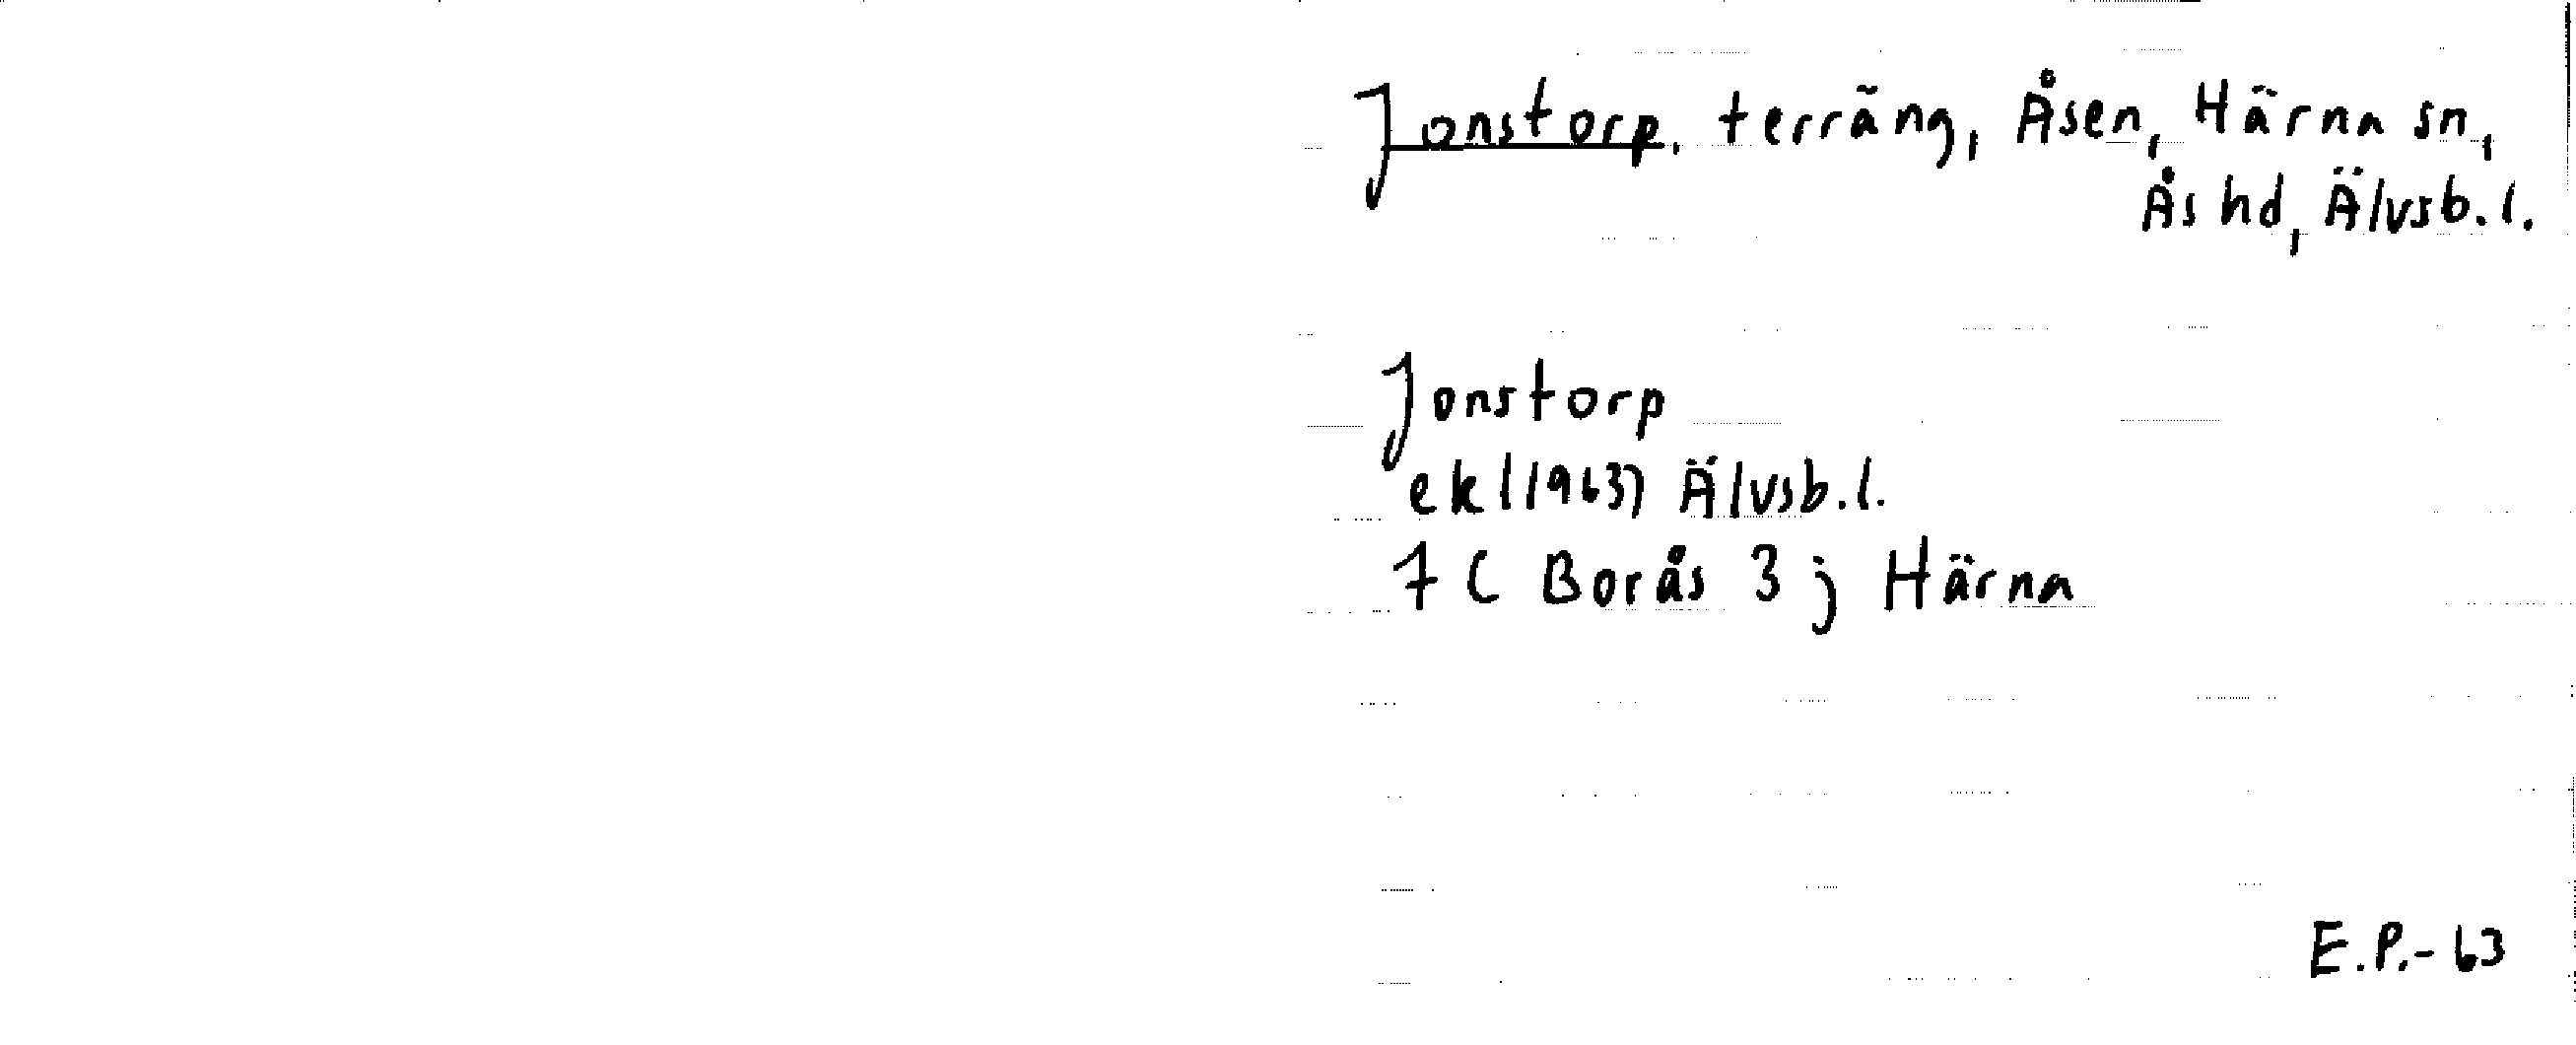 Jonstorp, terräng, Åsen, Härna sn,
Ås hd, Älvsb.l.
Jonstorp
ek (1963) Älvsb.l.
7 C Borås 3 j Härna
E.P.-63